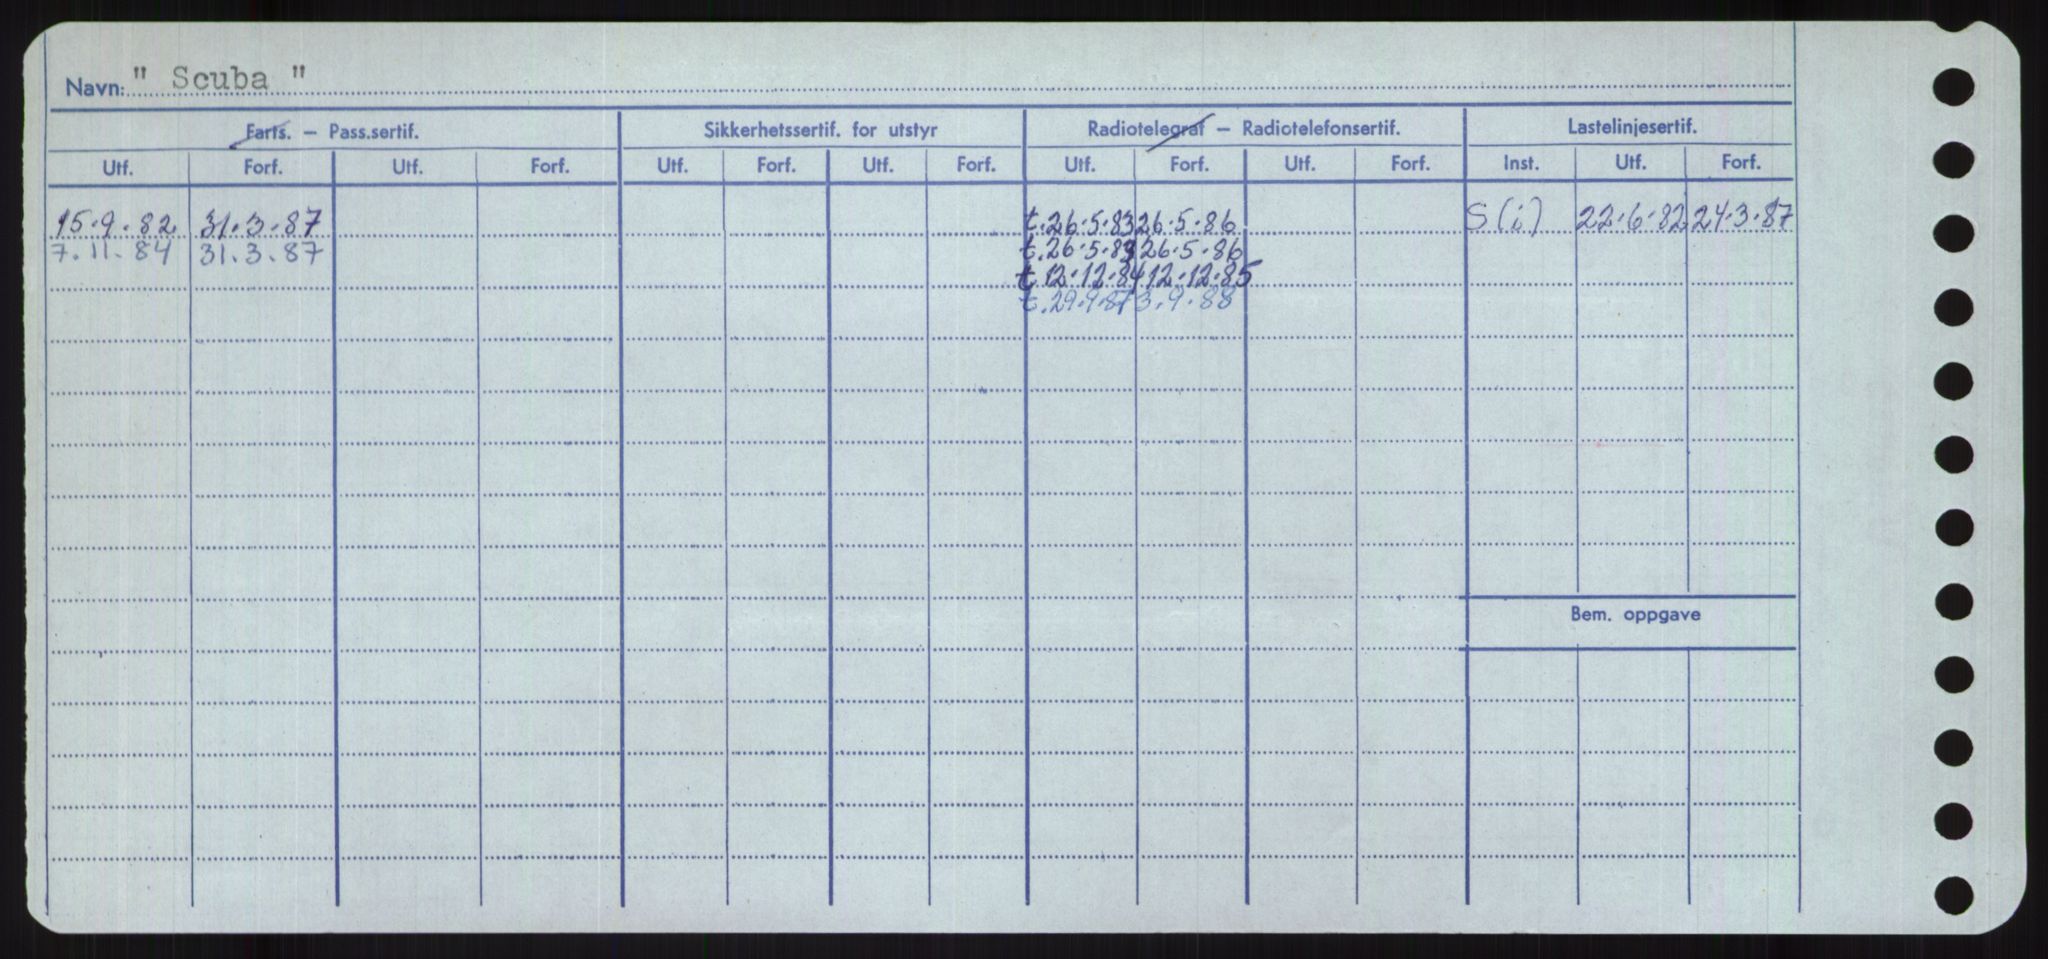 Navn: " Scuba "
Farts. — Pass.sertif. Sikkerhetssertif. for utstyr Radiotelegraf — Radiotelefonsertif. Lastelinjesertif.
Utf. Forf. Utf. Forf. Utf. Forf. Utf. Forf. Utf. Forf. Utf. Forf. Inst. Utf. Forf.
15.9.82 31.3.87 t.26.5.83 26.5.86 S(i) 22.6.82 24.3.87
7.11.84 31.3.87 t.26.5.83 26.5.86
t.12.12.84 12.12.85
t.29.9.87 3.9.88
Bem. oppgave